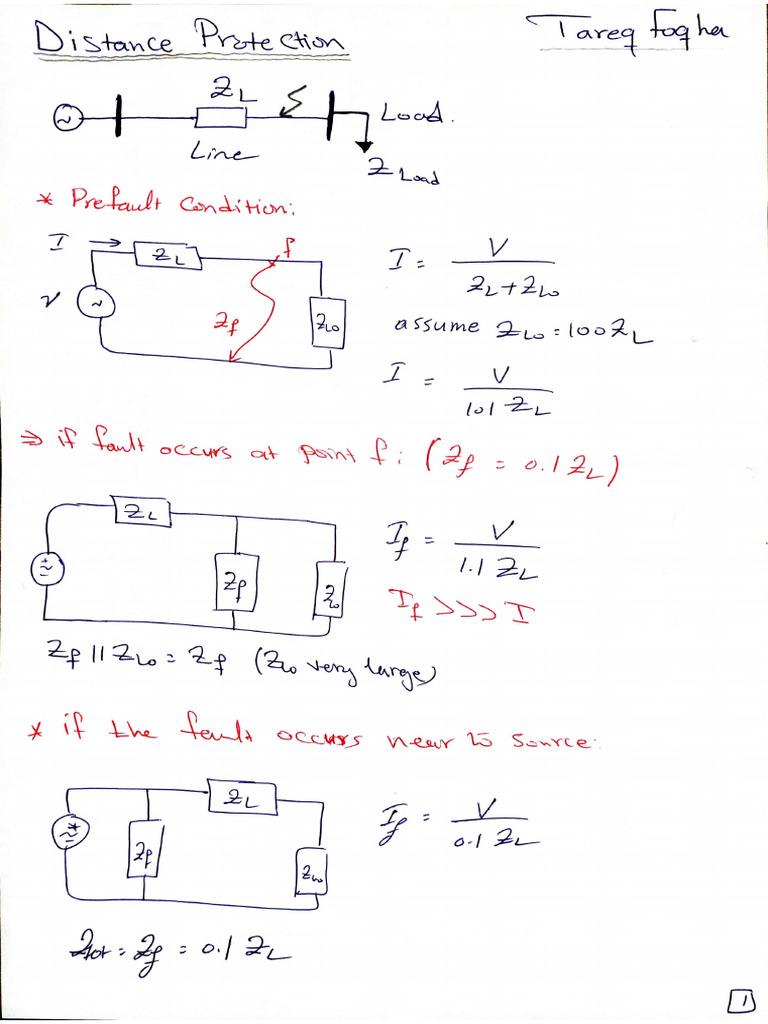 Distance Protection
Tareq foqha
Z_L
Line
Load.
Z_Load
* Prefault Condition:
I
Z_L
f
V
Z_f
Z_Lo
I = V / (Z_L + Z_Lo)
assume Z_Lo = 100Z_L
I = V / (101 Z_L)
⇒ if fault occurs at point f: (Z_f = 0.1 Z_L)
Z_L
Z_f
Z_Lo
I_f = V / (1.1 Z_L)
I_f >>> I
Z_f || Z_Lo = Z_f (Z_Lo very large)
* if the fault occurs near to source:
Z_L
Z_f
Z_Lo
I_f = V / (0.1 Z_L)
Z_tot = Z_f = 0.1 Z_L
1